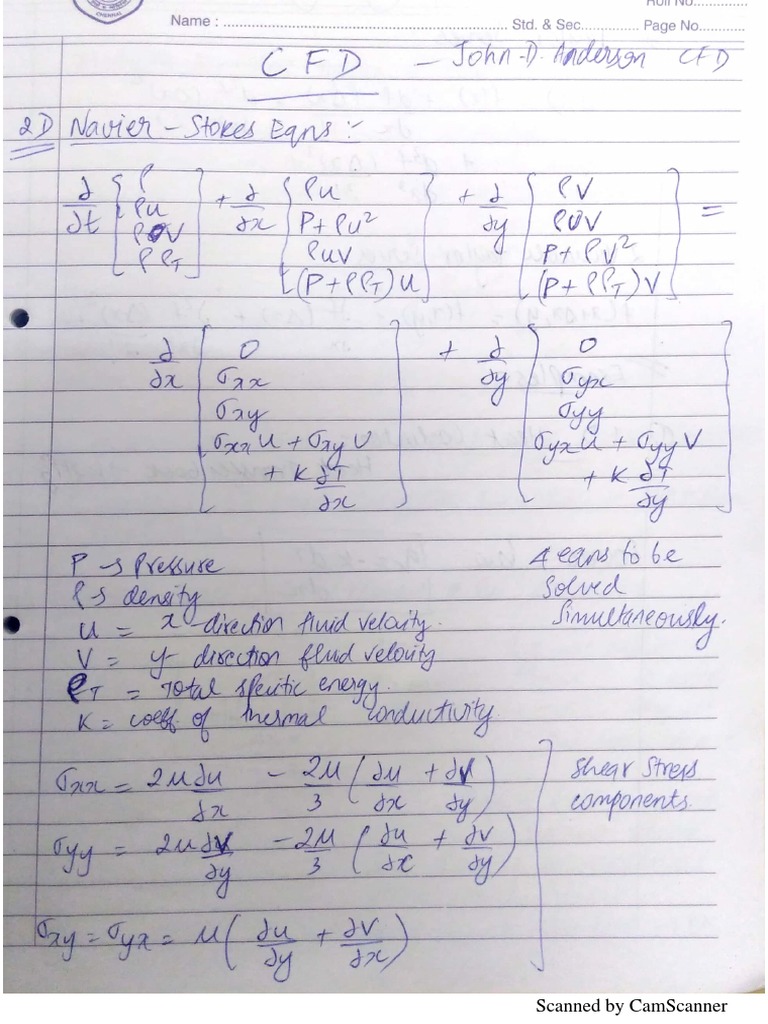 CHENNAI
Roll No.............
Name : ........................................................................ Std. & Sec.............. Page No............
CFD – John-D. Anderson CFD
2D Navier – Stokes Eqns :-
∂/∂t [ρ ; ρu ; ρv ; ρe_T] + ∂/∂x [ρu ; P+ρu² ; ρuv ; (P+ρe_T)u] + ∂/∂y [ρv ; ρuv ; P+ρv² ; (P+ρe_T)v] =
∂/∂x [0 ; σxx ; σxy ; σxx u + σxy v + K ∂T/∂x] + ∂/∂y [0 ; σyx ; σyy ; σyx u + σyy v + K ∂T/∂y]
P → Pressure
ρ → density
u = x-direction fluid velocity.
v = y-direction fluid velocity
e_T = Total specific energy.
K = coeff. of thermal conductivity.
4 eqns to be
solved
simultaneously.
σxx = 2μ ∂u/∂x – 2μ/3 (∂u/∂x + ∂v/∂y)
σyy = 2μ ∂v/∂y – 2μ/3 (∂u/∂x + ∂v/∂y)
σxy = σyx = μ (∂u/∂y + ∂v/∂x)
Shear Stress
components.
Scanned by CamScanner